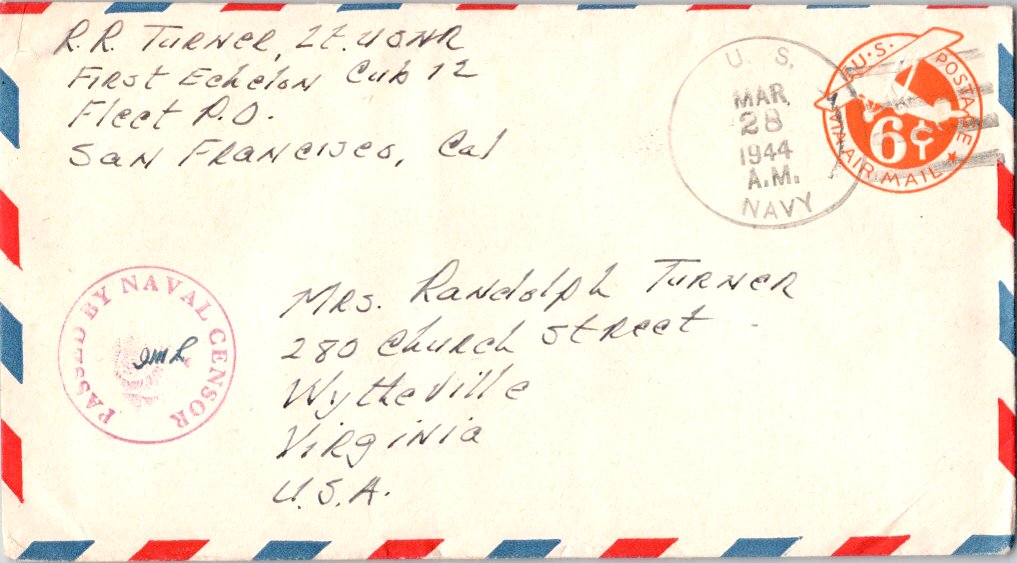 R.R. Turner, Lt. USNR
First Echelon Cub 12
Fleet P.O.
San Francisco, Cal
U. S.
MAR
28
1944
A.M.
NAVY
U.S. POSTAGE
6¢
VIA AIR MAIL
PASSED BY NAVAL CENSOR
Mrs. Randolph Turner
280 Church Street
Wytheville
Virginia
U.S.A.